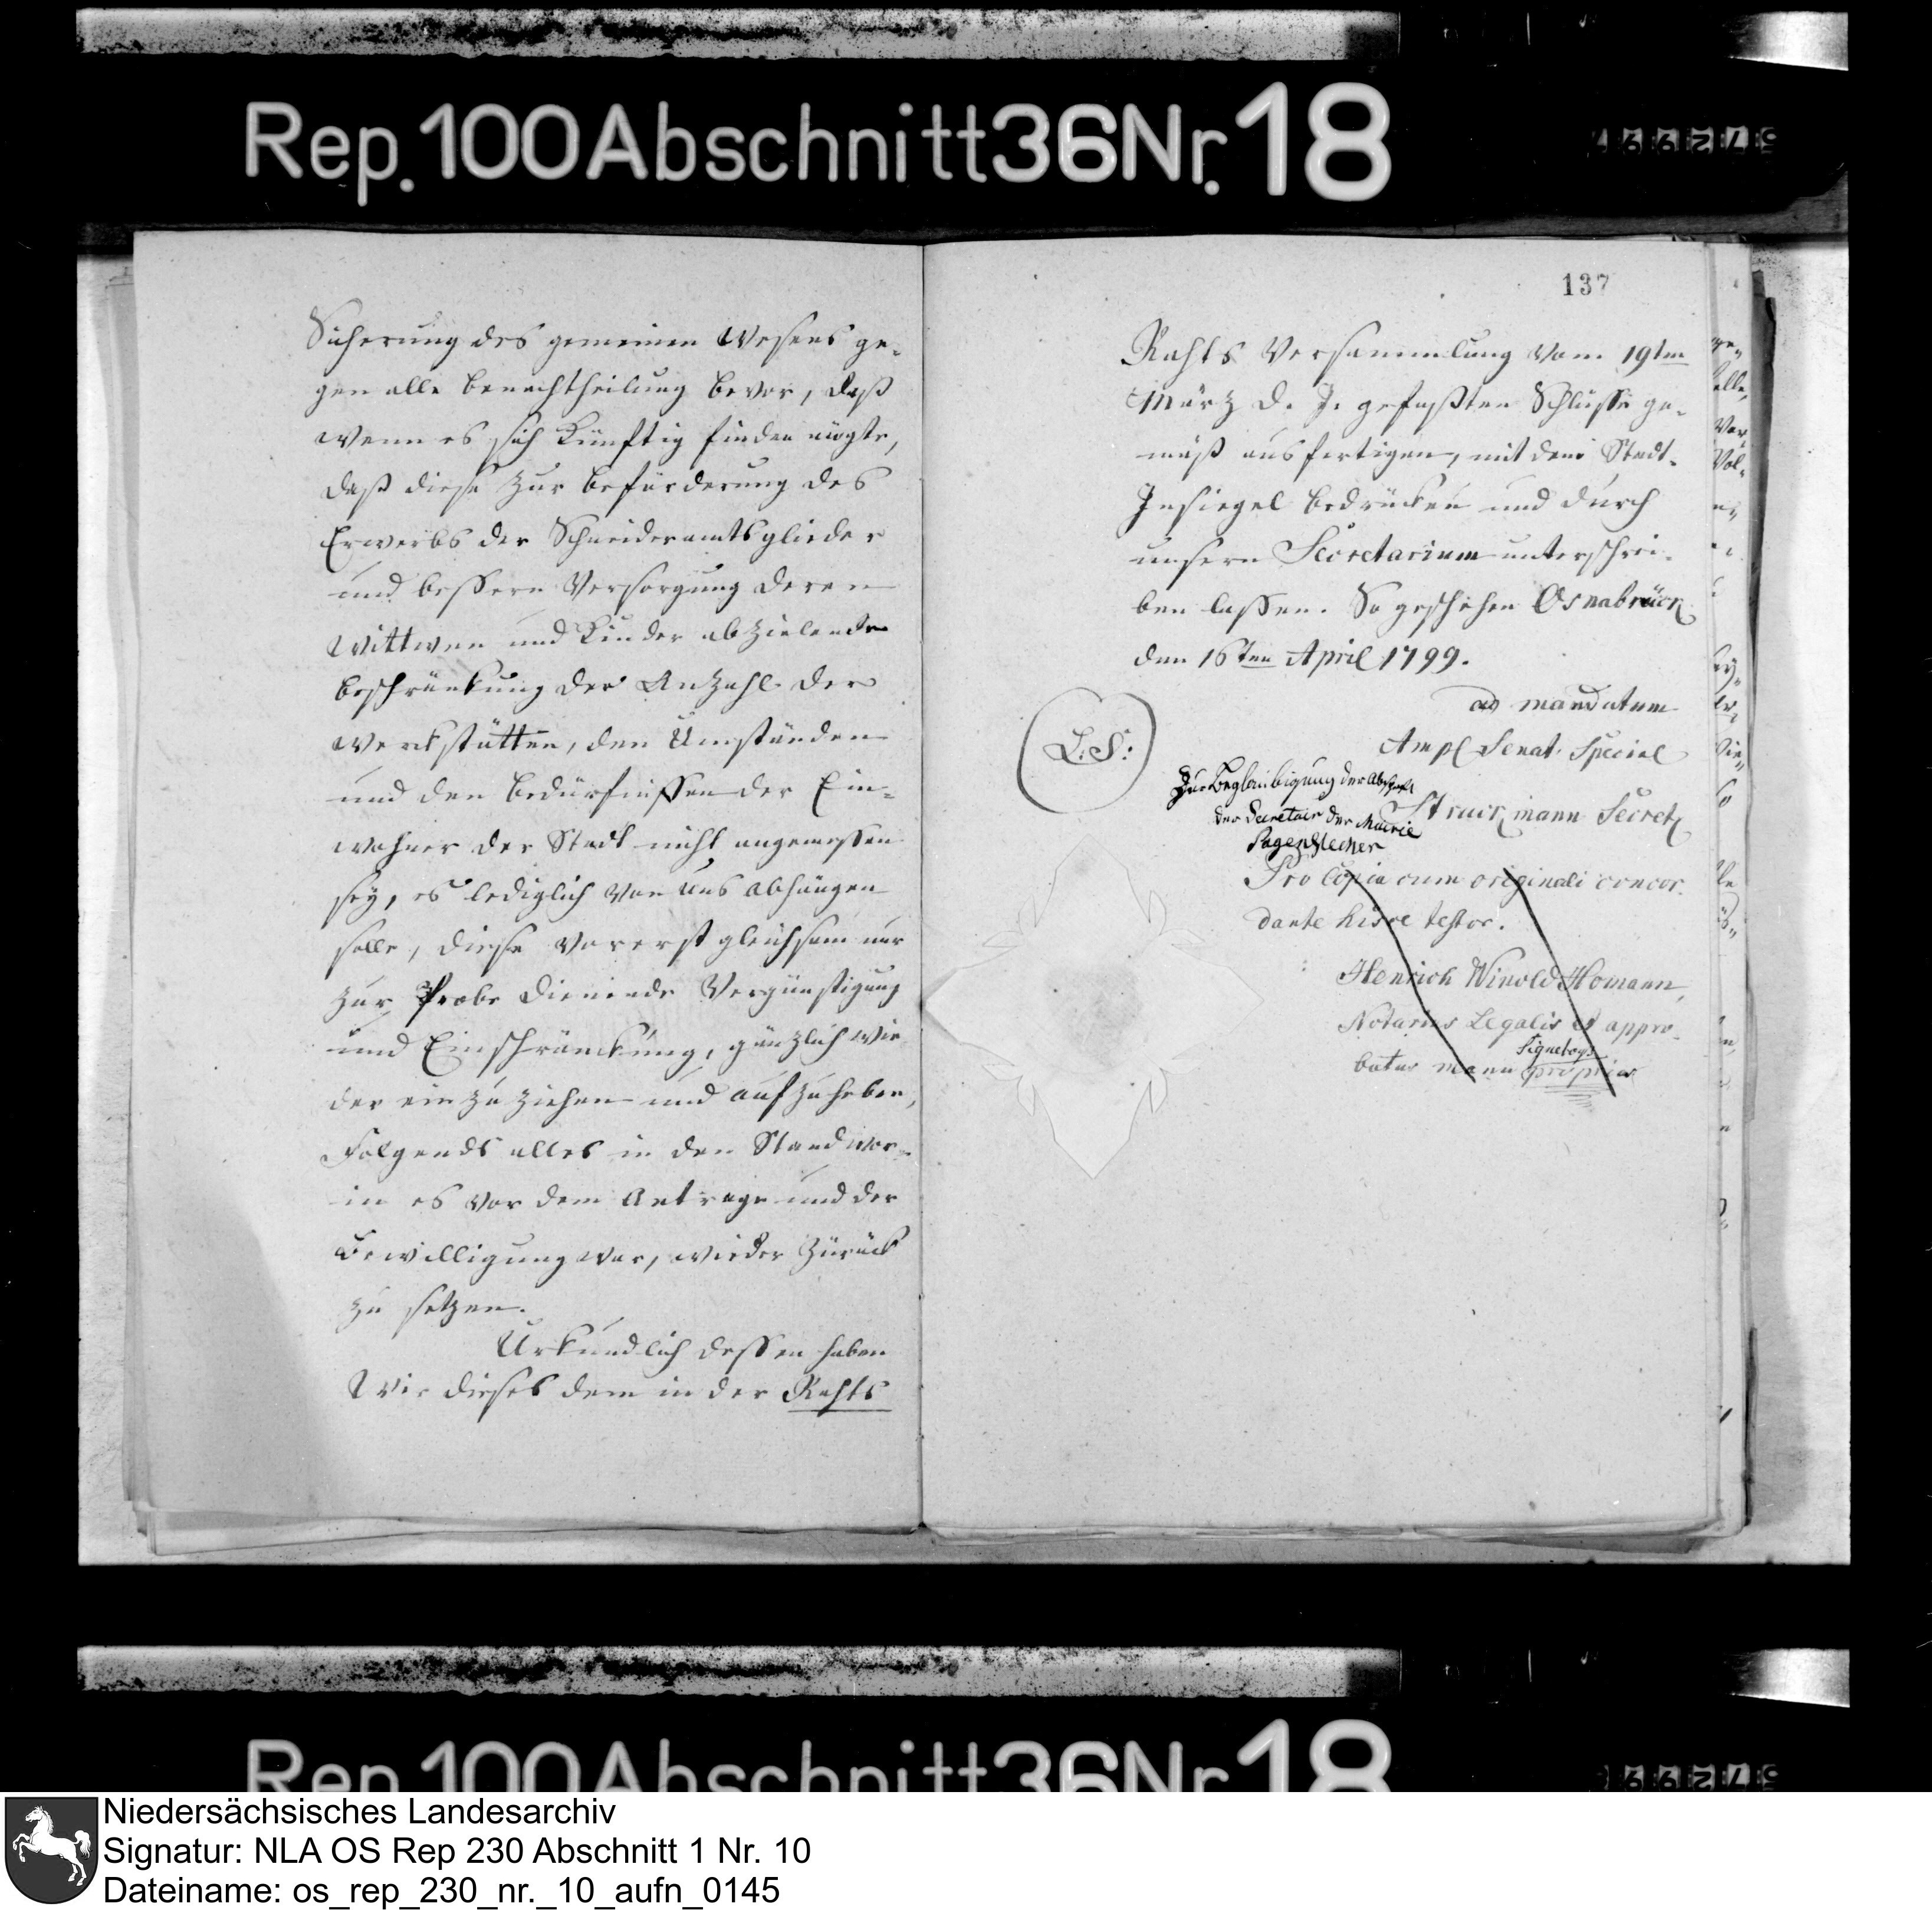 Rep. 100 Abschnitt 36 Nr. 18
Sicherung des gemeinen Wesens ge-
gen alle Benachtheilung bevor, daß
wenn es sich künftig finden mögte,
daß diese zur Beförderung des
Erwerbs der Schneideramtsglieder
und bessern Versorgung deren
Wittwen und Kinder abzielende
Beschränkung der Anzahl der
Werkstätten, den Umständen
und den Bedürfnissen der Ein-
wohner der Stadt nicht angemessen
sey, es lediglich von Uns abhängen
solle, diese vorerst gleichsam nur
zur Probe dienende Vergünstigung
und Einschränckung, gänzlich wie
der ein zu ziehen und aufzuheben,
Folgends alles in den Stand wor-
in es vor dem Antrage und der
Bewilligung war, wieder zurück
zu setzen.
Urkundlich dessen haben
Wir dieses dem in der Rahts
137
Rahts Versammlung vom 19ten
März d. J. gefaßten Schlusse ge-
mäß ausfertigen, mit dem Stadt-
Insiegel bedrücken und durch
unsern Secretarium unterschrei-
ben lassen. So geschehen Osnabrück
den 16ten April 1799.
ad mandatum
Ampl Senat. Special
L. S.:
Struckmann Secret
Zur Beglaubigung der Abschrift
der Secretair der Mairie
Pagenstecher
Pro Copia cum originali concor-
dante hisce testor.
Henrich Winold Homann,
Notarius Legalis et appro-
batus manu propria
Rep. 100 Abschnitt 36 Nr. 18
Niedersächsisches Landesarchiv
Signatur: NLA OS Rep 230 Abschnitt 1 Nr. 10
Dateiname: os_rep_230_nr._10_aufn_0145